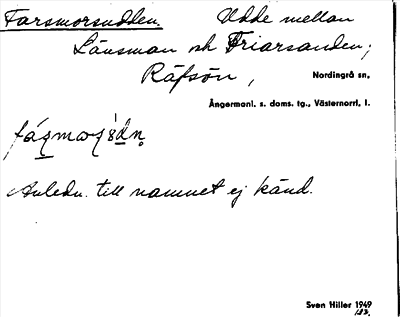 Farsmorsudden. Udde mellan
Länsman och Friarsanden;
Räfsön, Nordingrå sn,
Ångermanl. s. doms. tg., Västernorrl. l.
Anledn. till namnet ej känd.
Sven Hiller 1949